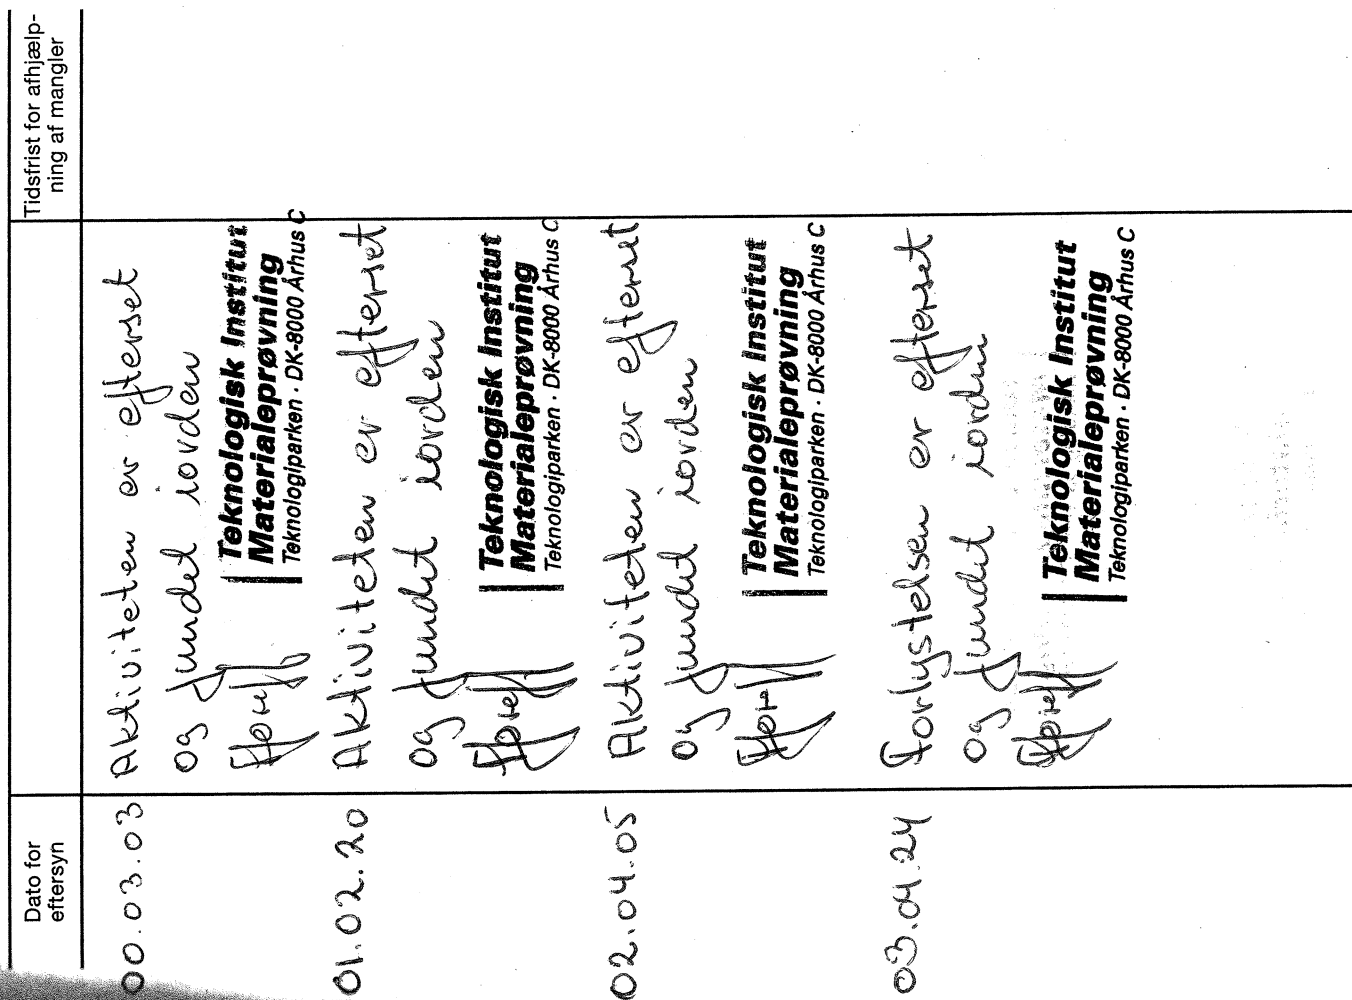 Dato for
eftersyn
Tidsfrist for afhjælp-
ning af mangler
00.03.03
Aktiviteten er efterset
og fundet iorden
Teknologisk Institut
Materialeprøvning
Teknologiparken · DK-8000 Århus C
01.02.20
Aktiviteten er efterset
og fundet iorden
Teknologisk Institut
Materialeprøvning
Teknologiparken · DK-8000 Århus C
02.04.05
Aktiviteten er efterset
og fundet iorden
Teknologisk Institut
Materialeprøvning
Teknologiparken · DK-8000 Århus C
03.04.24
Forlystelsen er efterset
og fundet iorden
Teknologisk Institut
Materialeprøvning
Teknologiparken · DK-8000 Århus C